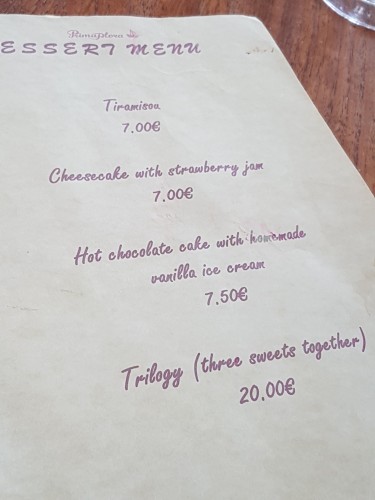 Pimiplou
ESSERT MENU
Tiramisou
7.00€
Cheesecake with strawberry jam
7.00€
Hot chocolate cake with homemade
vanilla ice cream
7.50€
Trilogy (three sweets together)
20.00€